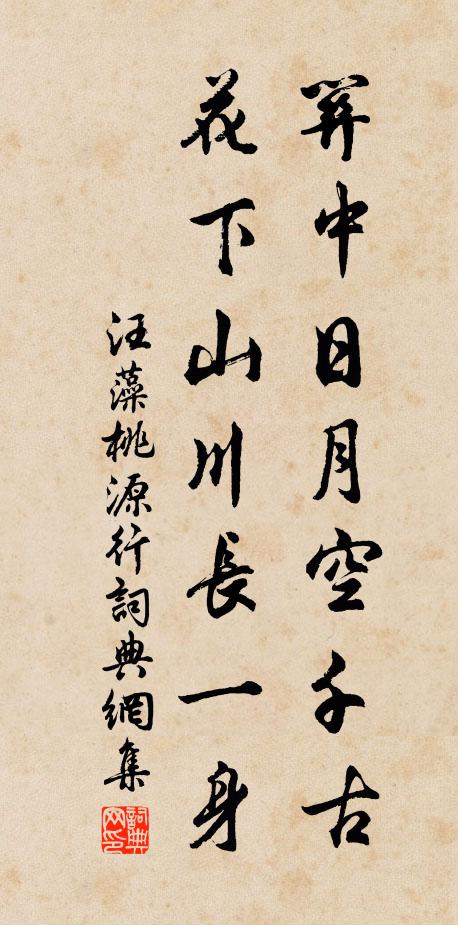 關中日月空千古
花下山川長一身
汪藻桃源行詞典網集
詞典
网印